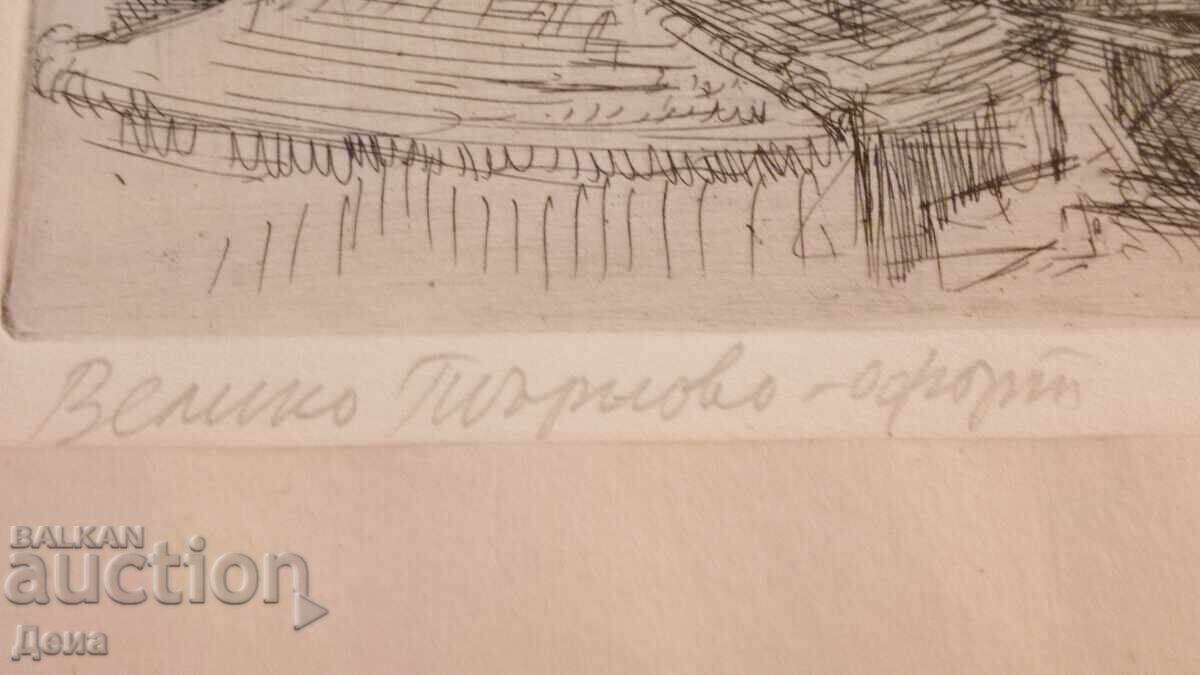 Велико Търново - офорт
BALKAN
auction
Деиа